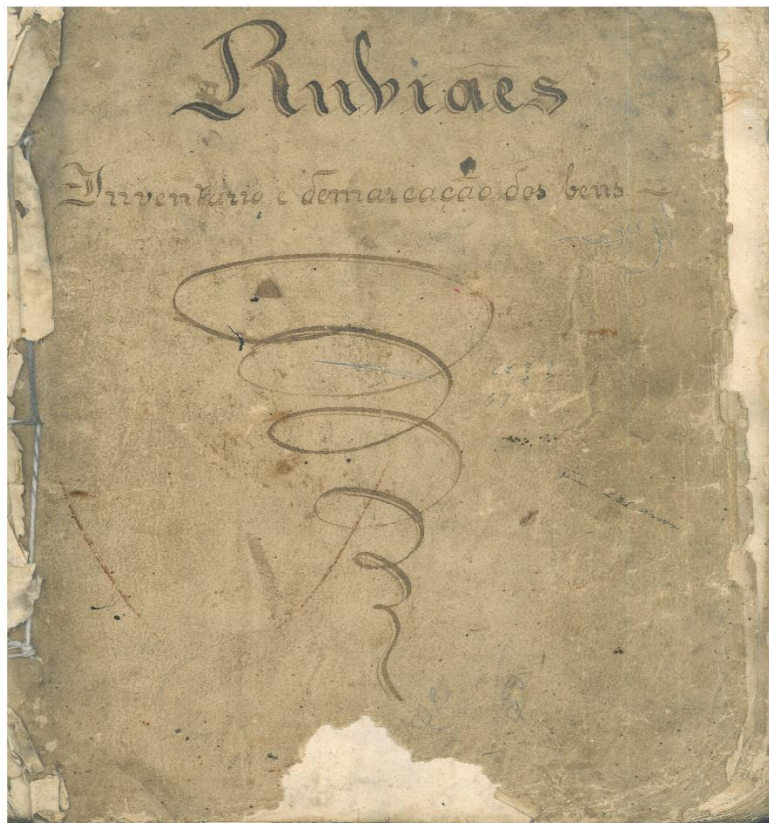 Rubiaes
Inventario e demarcação dos bens